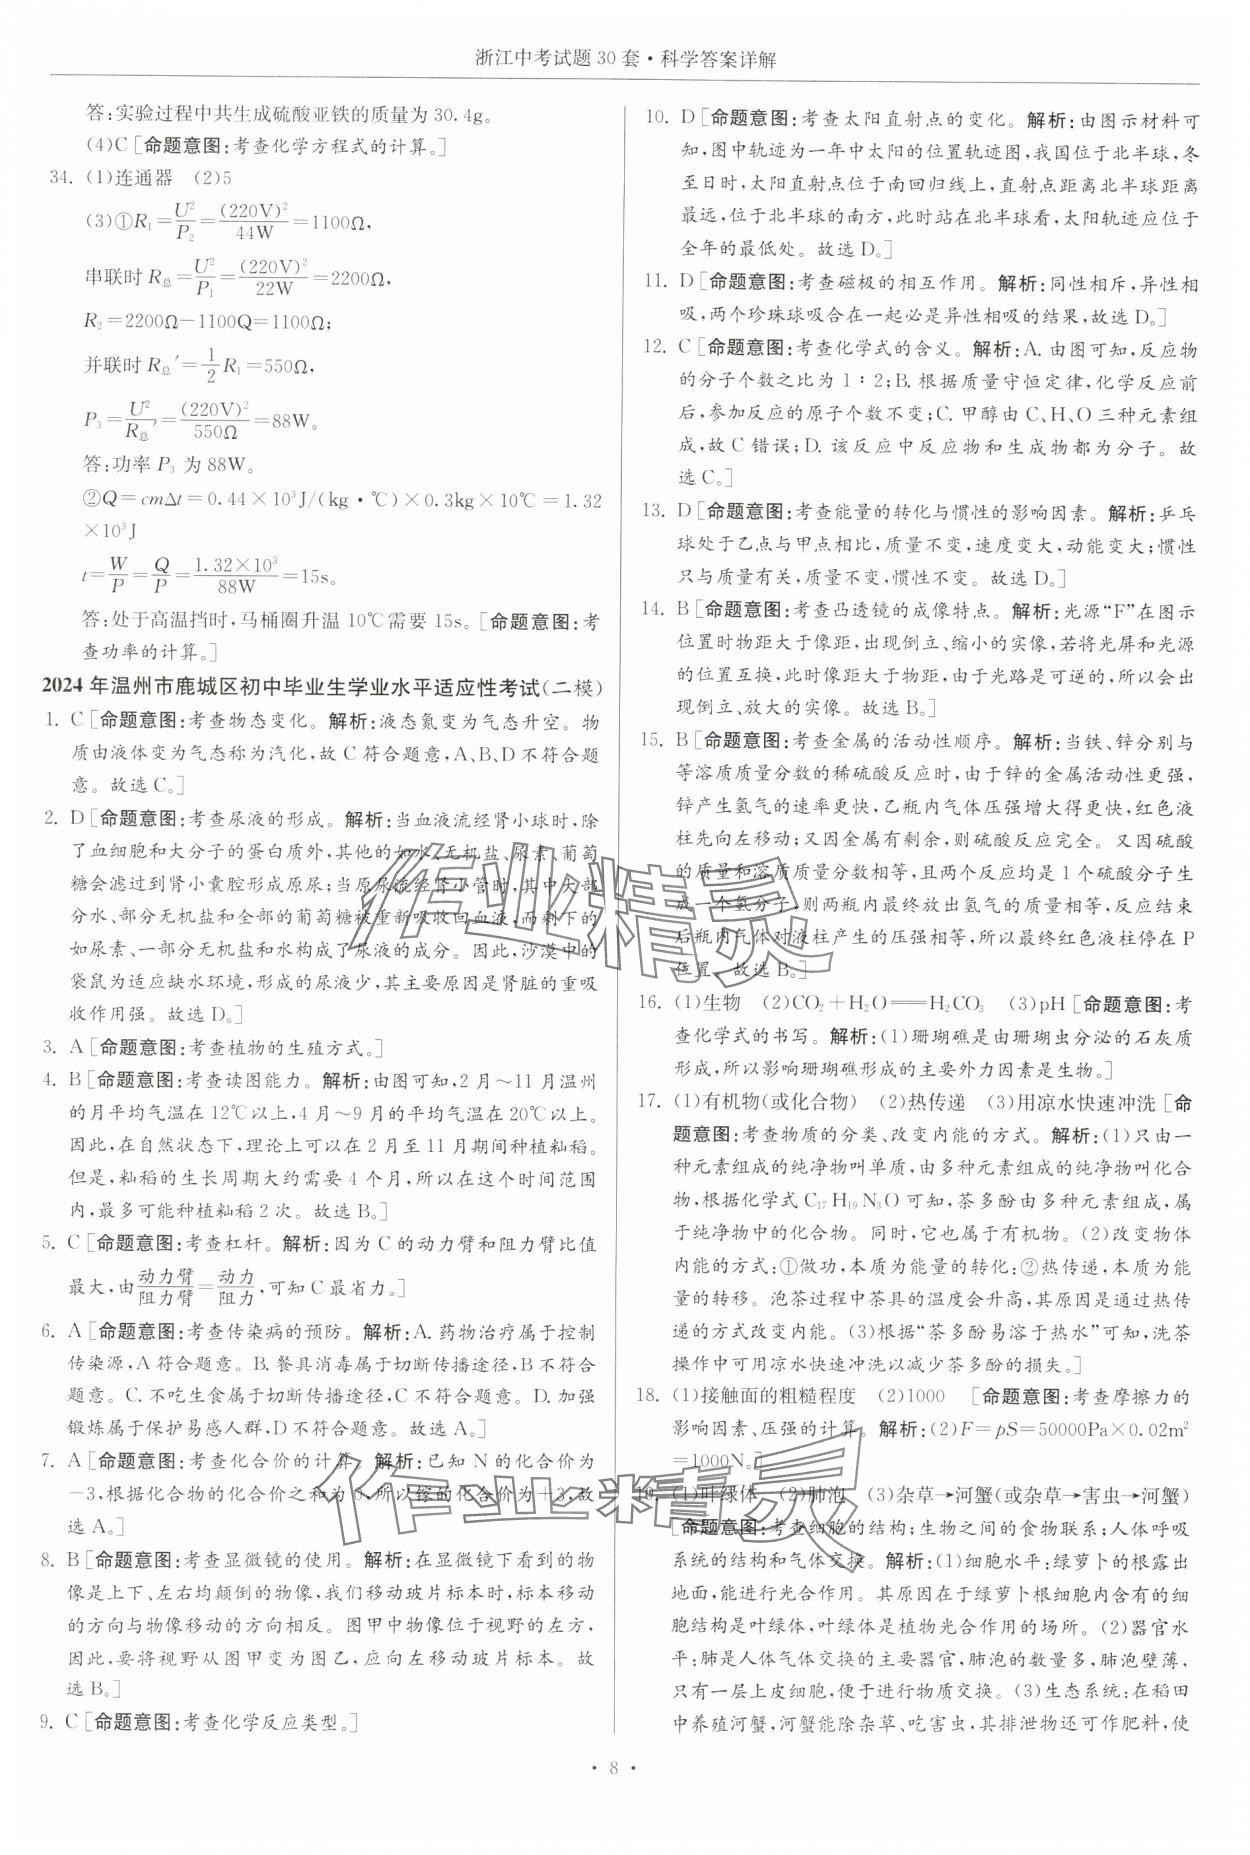 浙江中考试题30套·科学答案详解
答:实验过程中共生成硫酸亚铁的质量为30.4g。
(4)C[命题意图:考查化学方程式的计算。]
34. (1)连通器 (2)5
(3)①R₁=U²/P₂=(220V)²/44W=1100Ω,
串联时R总=U²/P₁=(220V)²/22W=2200Ω,
R₂=2200Ω−1100Q=1100Ω;
并联时R总′=1/2R₁=550Ω,
P₃=U²/R总′=(220V)²/550Ω=88W。
答:功率P₃为88W。
②Q=cmΔt=0.44×10³J/(kg·℃)×0.3kg×10℃=1.32
×10³J
t=W/P=Q/P=1.32×10³/88W=15s。
答:处于高温挡时,马桶圈升温10℃需要15s。[命题意图:考
查功率的计算。]
2024年温州市鹿城区初中毕业生学业水平适应性考试(二模)
1. C[命题意图:考查物态变化。解析:液态氮变为气态升空。物
质由液体变为气态称为汽化,故C符合题意,A、B、D不符合题
意。故选C。]
2. D[命题意图:考查尿液的形成。解析:当血液流经肾小球时,除
了血细胞和大分子的蛋白质外,其他的如水、无机盐、尿素、葡萄
糖会滤过到肾小囊腔形成原尿;当原尿流经肾小管时,其中大部
分水、部分无机盐和全部的葡萄糖被重新吸收回血液,而剩下的
如尿素、一部分无机盐和水构成了尿液的成分。因此,沙漠中的
袋鼠为适应缺水环境,形成的尿液少,其主要原因是肾脏的重吸
收作用强。故选D。]
3. A[命题意图:考查植物的生殖方式。]
4. B[命题意图:考查读图能力。解析:由图可知,2月～11月温州
的月平均气温在12℃以上,4月～9月的平均气温在20℃以上。
因此,在自然状态下,理论上可以在2月至11月期间种植籼稻。
但是,籼稻的生长周期大约需要4个月,所以在这个时间范围
内,最多可能种植籼稻2次。故选B。]
5. C[命题意图:考查杠杆。解析:因为C的动力臂和阻力臂比值
最大,由动力臂/阻力臂=动力/阻力,可知C最省力。]
6. A[命题意图:考查传染病的预防。解析:A.药物治疗属于控制
传染源,A符合题意。B.餐具消毒属于切断传播途径,B不符合
题意。C.不吃生食属于切断传播途径,C不符合题意。D.加强
锻炼属于保护易感人群,D不符合题意。故选A。]
7. A[命题意图:考查化合价的计算。解析:已知N的化合价为
−3,根据化合物的化合价之和为0,所以镓的化合价为+3,故
选A。]
8. B[命题意图:考查显微镜的使用。解析:在显微镜下看到的物
像是上下、左右均颠倒的物像,我们移动玻片标本时,标本移动
的方向与物像移动的方向相反。图甲中物像位于视野的左方,
因此,要将视野从图甲变为图乙,应向左移动玻片标本。故
选B。]
9. C[命题意图:考查化学反应类型。]
10. D[命题意图:考查太阳直射点的变化。解析:由图示材料可
知,图中轨迹为一年中太阳的位置轨迹图,我国位于北半球,冬
至日时,太阳直射点位于南回归线上,直射点距离北半球距离
最远,位于北半球的南方,此时站在北半球看,太阳轨迹应位于
全年的最低处。故选D。]
11. D[命题意图:考查磁极的相互作用。解析:同性相斥,异性相
吸,两个珍珠球吸合在一起必是异性相吸的结果,故选D。]
12. C[命题意图:考查化学式的含义。解析:A.由图可知,反应物
的分子个数之比为1∶2;B.根据质量守恒定律,化学反应前
后,参加反应的原子个数不变;C.甲醇由C、H、O三种元素组
成,故C错误;D.该反应中反应物和生成物都为分子。故
选C。]
13. D[命题意图:考查能量的转化与惯性的影响因素。解析:乒乓
球处于乙点与甲点相比,质量不变,速度变大,动能变大;惯性
只与质量有关,质量不变,惯性不变。故选D。]
14. B[命题意图:考查凸透镜的成像特点。解析:光源“F”在图示
位置时物距大于像距,出现倒立、缩小的实像,若将光屏和光源
的位置互换,此时像距大于物距,由于光路是可逆的,所以会出
现倒立、放大的实像。故选B。]
15. B[命题意图:考查金属的活动性顺序。解析:当铁、锌分别与
等溶质质量分数的稀硫酸反应时,由于锌的金属活动性更强,
锌产生氢气的速率更快,乙瓶内气体压强增大得更快,红色液
柱先向左移动;又因金属有剩余,则硫酸反应完全。又因硫酸
的质量和溶质质量分数相等,且两个反应均是1个硫酸分子生
成一个氢分子,则两瓶内最终放出氢气的质量相等,反应结束
后瓶内气体对液柱产生的压强相等,所以最终红色液柱停在P
位置。故选B。]
16. (1)生物 (2)CO₂+H₂O══H₂CO₃ (3)pH[命题意图:考
查化学式的书写。解析:(1)珊瑚礁是由珊瑚虫分泌的石灰质
形成,所以影响珊瑚礁形成的主要外力因素是生物。]
17. (1)有机物(或化合物) (2)热传递 (3)用凉水快速冲洗[命
题意图:考查物质的分类、改变内能的方式。解析:(1)只由一
种元素组成的纯净物叫单质,由多种元素组成的纯净物叫化合
物,根据化学式C₁₇H₁₉N₃O可知,茶多酚由多种元素组成,属
于纯净物中的化合物。同时,它也属于有机物。(2)改变物体
内能的方式:①做功,本质为能量的转化;②热传递,本质为能
量的转移。泡茶过程中茶具的温度会升高,其原因是通过热传
递的方式改变内能。(3)根据“茶多酚易溶于热水”可知,洗茶
操作中可用凉水快速冲洗以减少茶多酚的损失。]
18. (1)接触面的粗糙程度 (2)1000 [命题意图:考查摩擦力的
影响因素、压强的计算。解析:(2)F=pS=50000Pa×0.02m²
=1000N。]
19. (1)叶绿体 (2)肺泡 (3)杂草→河蟹(或杂草→害虫→河蟹)
[命题意图:考查细胞的结构;生物之间的食物联系;人体呼吸
系统的结构和气体交换。解析:(1)细胞水平:绿萝卜的根露出
地面,能进行光合作用。其原因在于绿萝卜根细胞内含有的细
胞结构是叶绿体,叶绿体是植物光合作用的场所。(2)器官水
平:肺是人体气体交换的主要器官,肺泡的数量多,肺泡壁薄,
只有一层上皮细胞,便于进行物质交换。(3)生态系统:在稻田
中养殖河蟹,河蟹能除杂草、吃害虫,其排泄物还可作肥料,使
作业精灵
作业精灵
·8·